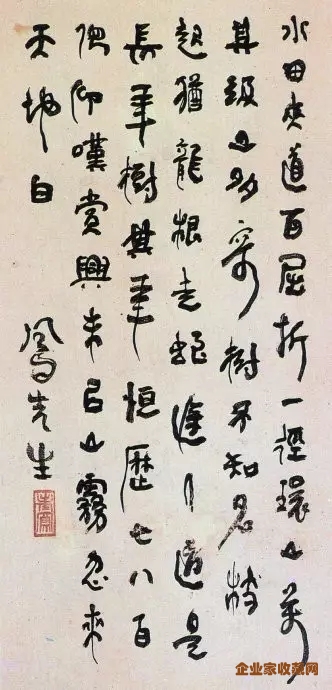 水田夾道百屈折一徑環山萬
其級山多奇樹不知名枝
起猶龍根走蛇逢人道是
長年樹其年恒歷七八百
俯仰嘆賞興未已山霧忽來
天地白
先生
企业家收藏网